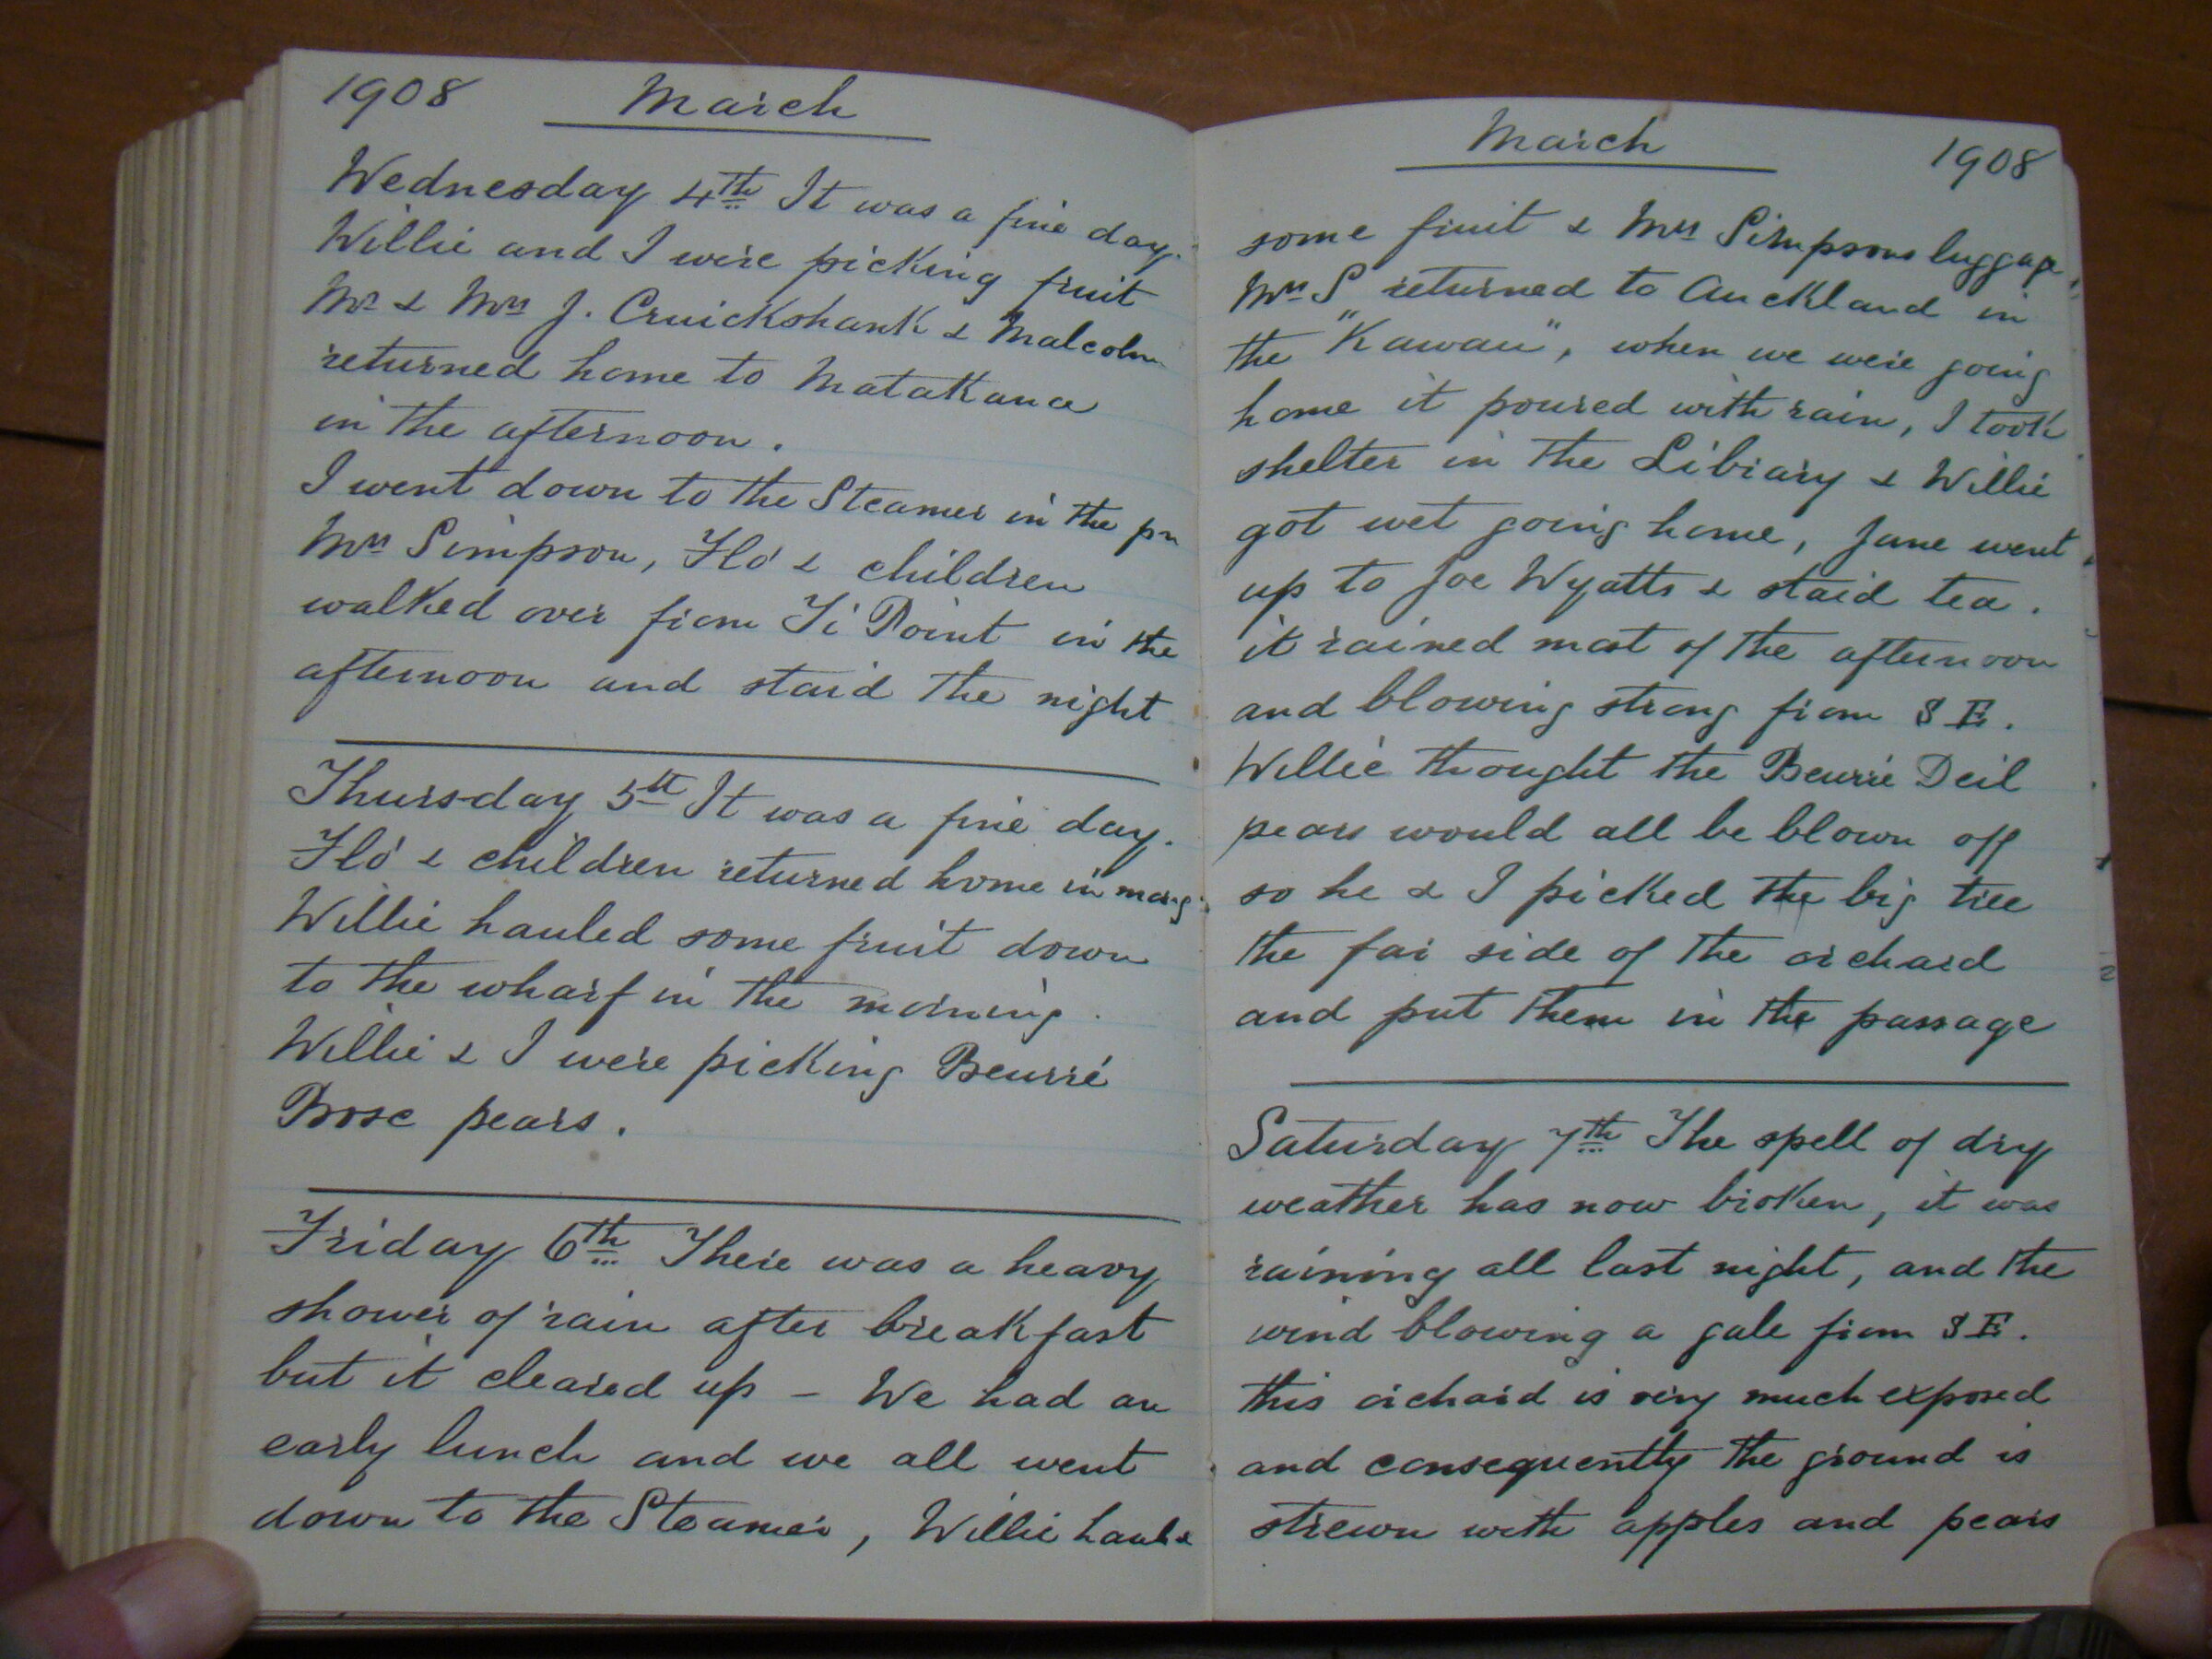 1908 March
Wednesday 4th It was a fine day.
Willie and I were picking fruit
Mr & Mrs J. Cruickshank & Malcolm
returned home to Matakana
in the afternoon.
I went down to the Steamer in the pm
Mrs Simpson, Flo' & children
walked over from Ti Point in the
afternoon and staid the night
Thursday 5th It was a fine day.
Flo' & children returned home in morng
Willie hauled some fruit down
to the wharf in the morning.
Willie & I were picking Beurré
Bosc pears.
Friday 6th There was a heavy
shower of rain after breakfast
but it cleared up – We had an
early lunch and we all went
down to the Steamer, Willie hauld
March 1908
some fruit & Mrs Simpsons luggage,
Mrs S returned to Auckland in
the "Kawau", when we were going
home it poured with rain, I took
shelter in the Library & Willie
got wet going home, Jane went
up to Joe Wyatts & staid tea.
it rained most of the afternoon
and blowing strong from S E.
Willie thought the Beurré Deil
pears would all be blown off
so he & I picked the big tree
the far side of the orchard
and put them in the passage
Saturday 7th The spell of dry
weather has now broken, it was
raining all last night, and the
wind blowing a gale from S E.
this orchard is very much exposed
and consequently the ground is
strewn with apples and pears